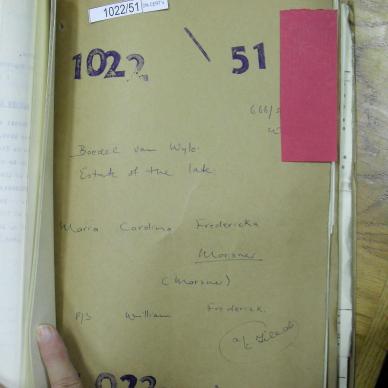 1022/51
1022 \ 51
666/5
Boedel van Wyle
Estate of the late
Maria Carolina Fredericka
Morsner
(Morsner)
P/S William Frederick
1022